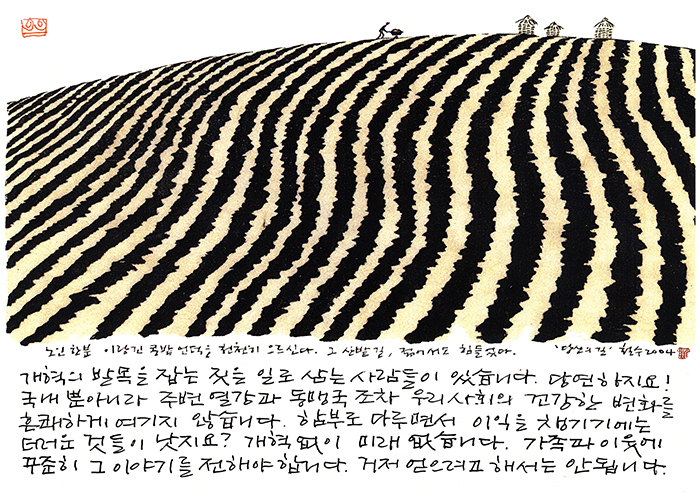 노인 한분 이랑긴 콩밭 언덕을 천천히 오르신다. 그 산밭 길, 젊어서도 힘들었다. '당신의 길' 철수 2004
개혁의 발목을 잡는 짓을 일로 삼는 사람들이 있습니다. 당연하지요!
국내 뿐아니라 주변 열강과 동맹국 조차 우리사회의 건강한 변화를
흔쾌하게 여기지 않습니다. 함부로 다루면서 이익을 챙기기에는
더러운 것들이 낫지요? 개혁 없이 미래 없습니다. 가족과 이웃에
꾸준히 그 이야기를 전해야 합니다. 거저 얻으려고 해서는 안됩니다.